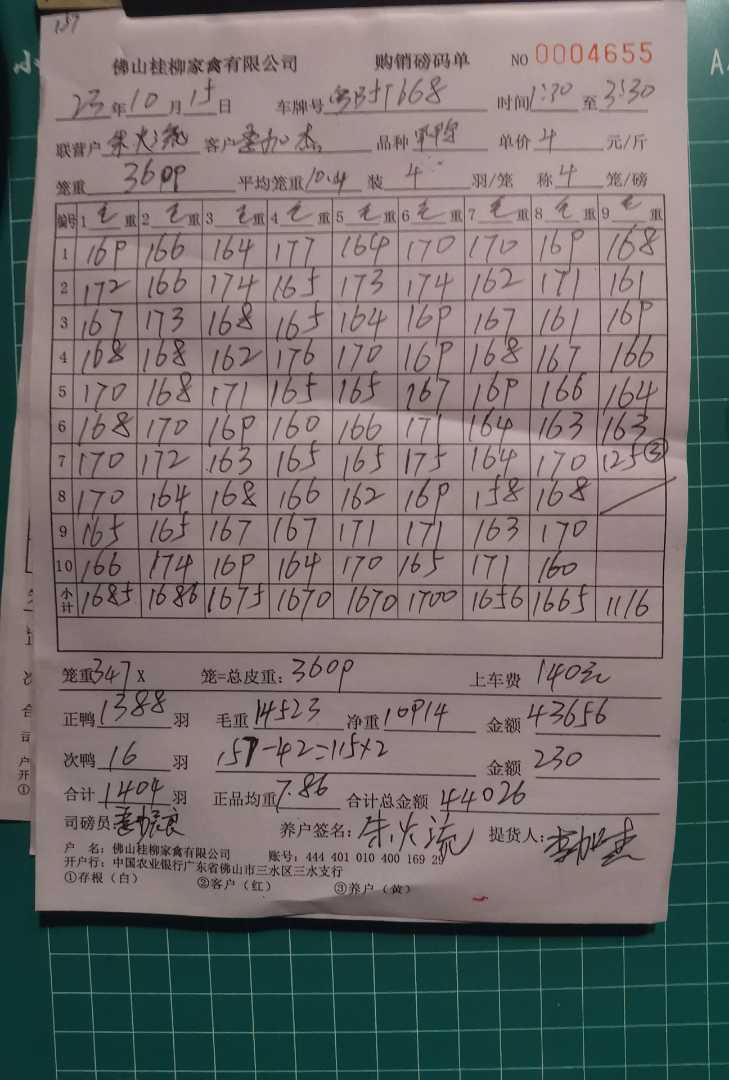 157
佛山桂柳家禽有限公司 购销磅码单 NO 0004655
23年10月15日 车牌号 668 时间1:30至3:30
联营户 朱火流 客户 李加杰 品种 单价 4 元/斤
笼重 3609 平均笼重 10.4 装 4 羽/笼 称 4 笼/磅
编号 1 毛重 2 毛重 3 毛重 4 毛重 5 毛重 6 毛重 7 毛重 8 毛重 9 毛重
1 169 166 164 177 164 170 170 169 168
2 172 166 174 165 173 174 162 171 161
3 167 173 168 165 164 169 167 161 169
4 168 168 162 176 170 169 168 167 166
5 170 168 171 165 165 167 169 166 164
6 168 170 169 160 166 171 164 163 163
7 170 172 163 165 165 175 164 170 125③
8 170 164 168 166 162 169 158 168
9 165 165 167 167 171 171 163 170
10 166 174 169 164 170 165 171 160
小计 1685 1686 1675 1670 1670 1700 1656 1665 1116
笼重347X 笼=总皮重:3609 上车费 140元
正鸭1388羽 毛重14523 净重10914 金额43656
次鸭 16 羽 157-42=115×2 金额 230
合计1404羽 正品均重7.86 合计总金额 44026
司磅员: 养户签名:朱火流 提货人:李加杰
户 名:佛山桂柳家禽有限公司 账号:444 401 010 400 169 29
开户行:中国农业银行广东省佛山市三水区三水支行
①存根(白) ②客户(红) ③养户(黄)